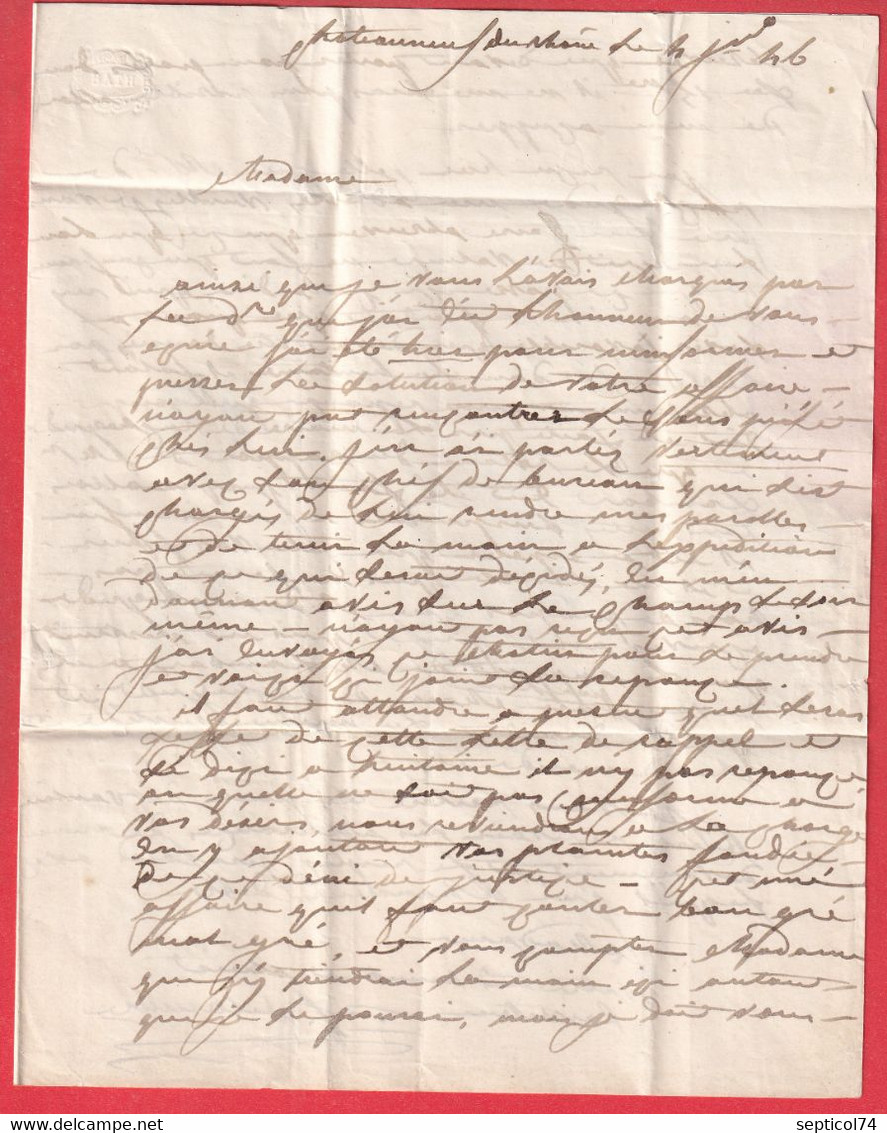 BATH
Chateauneuf du rhône le 4 j.re 46
Madame
ainsi que je vous l'avais marqués par
la d.re que j'ai eu l'honneur de vous
ecrire j'ai été hier pour m'informer et
presser la solution de votre affaire
n'ayant pas rencontrer le sous préfé
chés lui, j'en ai parlés
avec son chéf de bureau qui s'est
chargés de lui rendre mes parolles
et de tenir la main a l'expédition
de ce qui serat décidés, en m'en
donnant avis sur le champ
même n'ayant pas reçu cet avis
j'ai envoyés ce matin pour le prendre
et voici ci joint la reponce.
il faut attendre a present quel serat
l'effe de cette lettre de rappel et
si dici a huitaine il ny pas reponce
ou quelle ne soit pas conforme a
vos désirs, nous reviendrons a la charge
en y ajoutant vos plaintes fondées
de ce déni de justice
affaire qu'il faut bon gré
mal gré et vous compter Madame
que j'y tiendrai la main ici autant
que je le pourai, mais je doit vous
septicol74